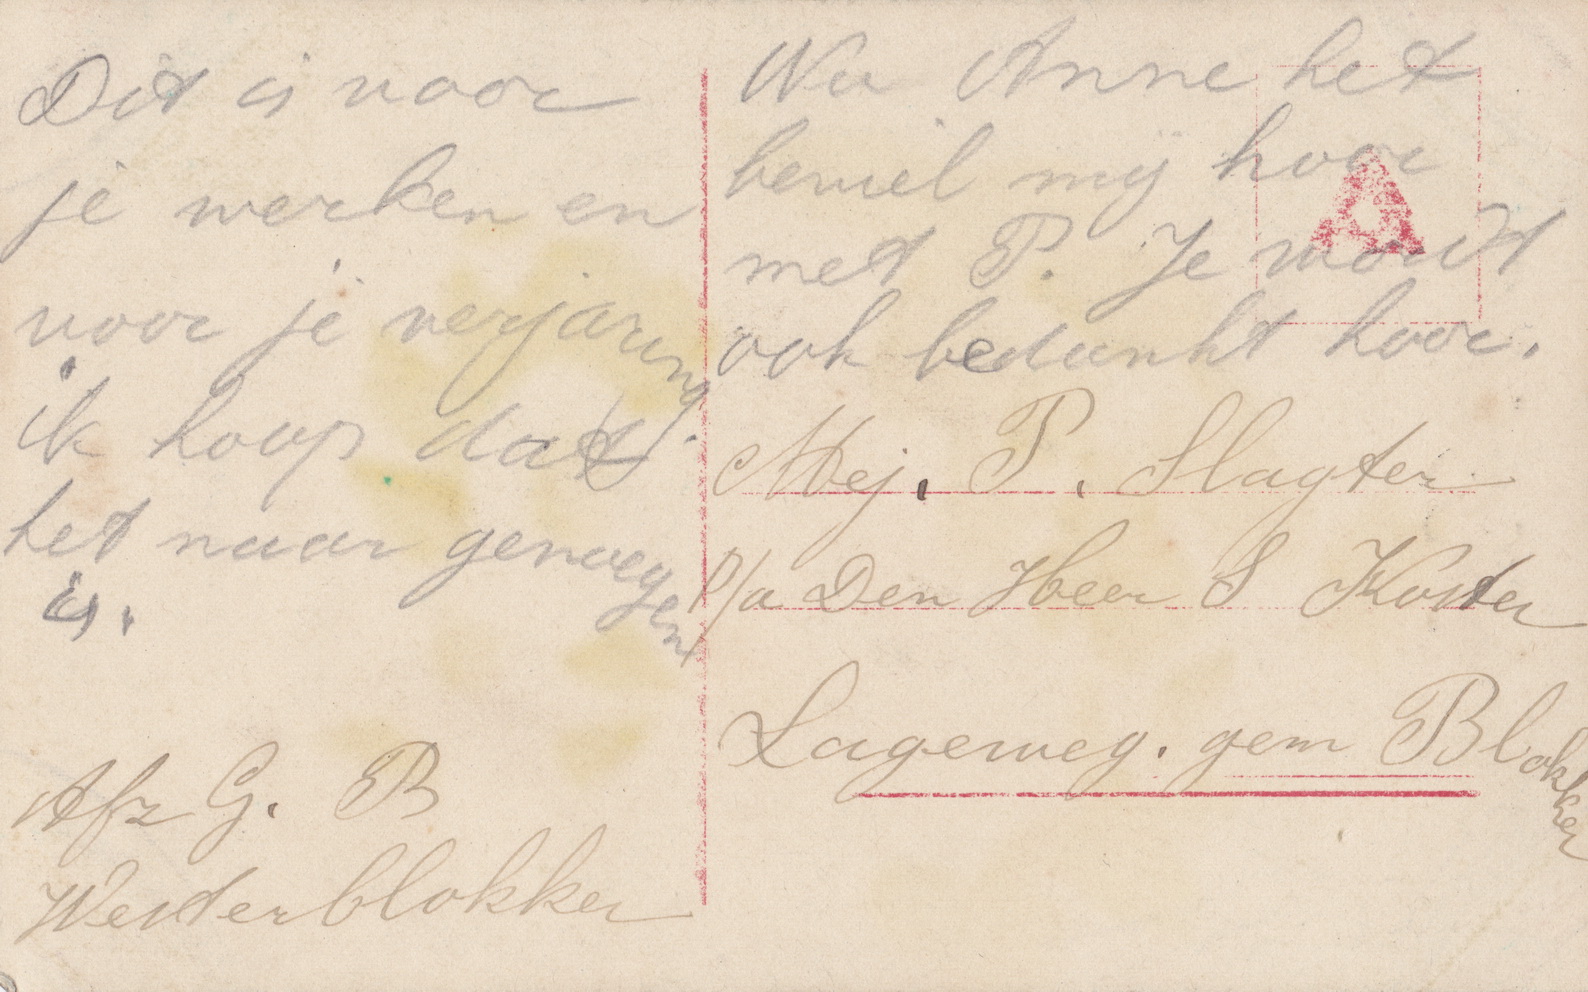 Dit is voor
je werken en
voor je verjaring.
ik hoop dat
het naar genoegen
is.
Afz G. B
Westerblokker
Nu Anne het
beviel mij hoor
met P. Je wordt
ook bedankt hoor.
A
Mej. P. Slagter
p/a Den Heer S Koster
Lageweg. gem Blokker